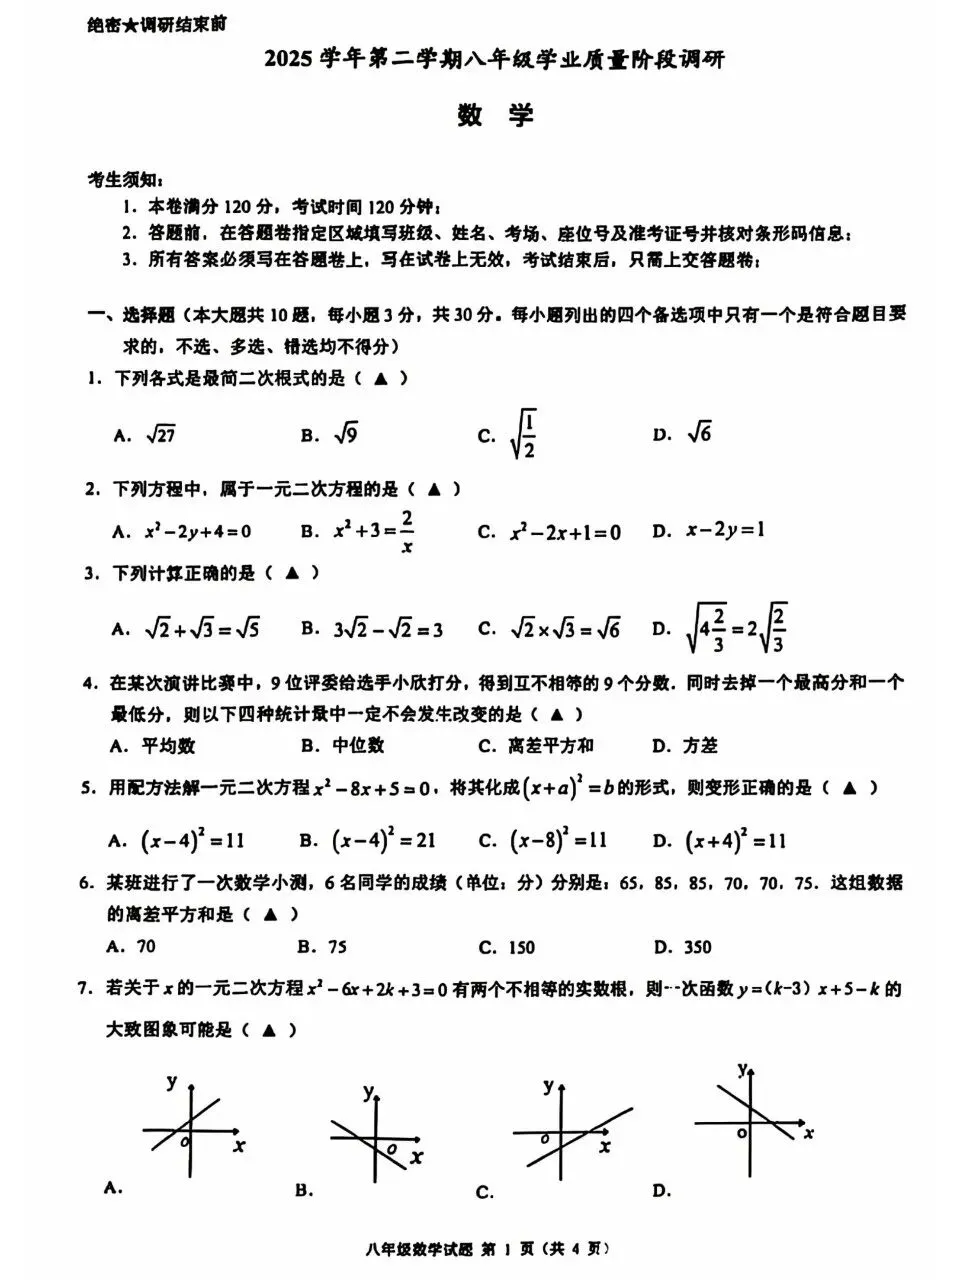 绝密★调研结束前
2025 学年第二学期八年级学业质量阶段调研
数 学
考生须知：
1. 本卷满分 120 分，考试时间 120 分钟；
2. 答题前，在答题卷指定区域填写班级、姓名、考场、座位号及准考证号并核对条形码信息；
3. 所有答案必须写在答题卷上，写在试卷上无效，考试结束后，只需上交答题卷；
一、选择题（本大题共 10 题，每小题 3 分，共 30 分。每小题列出的四个备选项中只有一个是符合题目要
求的，不选、多选、错选均不得分）
1. 下列各式是最简二次根式的是（ ▲ ）
A. √27 B. √9 C. √(1/2) D. √6
2. 下列方程中，属于一元二次方程的是（ ▲ ）
A. x²－2y+4=0 B. x²+3=2/x C. x²－2x+1=0 D. x－2y=1
3. 下列计算正确的是（ ▲ ）
A. √2+√3=√5 B. 3√2－√2=3 C. √2×√3=√6 D. √(4 2/3)=2√(2/3)
4. 在某次演讲比赛中，9 位评委给选手小欣打分，得到互不相等的 9 个分数．同时去掉一个最高分和一个
最低分，则以下四种统计量中一定不会发生改变的是（ ▲ ）
A. 平均数 B. 中位数 C. 离差平方和 D. 方差
5. 用配方法解一元二次方程 x²－8x+5=0，将其化成(x+a)²=b 的形式，则变形正确的是（ ▲ ）
A. (x－4)²=11 B. (x－4)²=21 C. (x－8)²=11 D. (x+4)²=11
6. 某班进行了一次数学小测，6 名同学的成绩（单位：分）分别是：65，85，85，70，70，75．这组数据
的离差平方和是（ ▲ ）
A. 70 B. 75 C. 150 D. 350
7. 若关于 x 的一元二次方程 x²－6x+2k+3=0 有两个不相等的实数根，则一次函数 y=(k-3) x+5－k 的
大致图象可能是（ ▲ ）
y y y y
O x O x O x O x
A. B. C. D.
八年级数学试题 第 1 页（共 4 页）